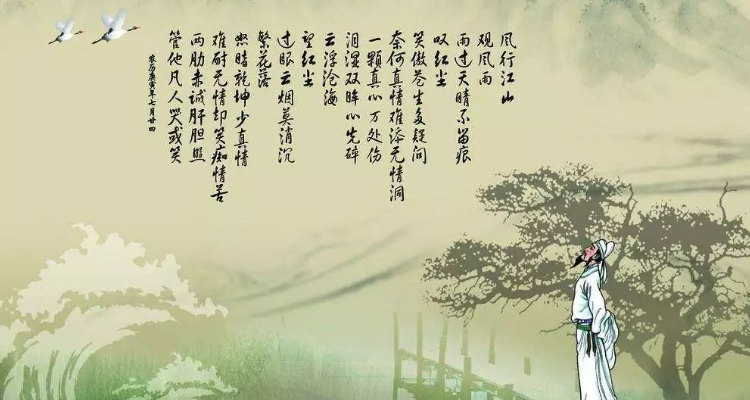 风行江山
观风雨
雨过天晴不留痕
叹红尘
笑傲苍生多疑问
奈何真情难添无情洞
一颗真心万处伤
泪湿双眸心先碎
云浮沧海
望红尘
过眼云烟莫消沉
繁花落
照晴乾坤少真情
难耐无情却笑痴情苦
两肋赤诚肝胆照
管他凡人哭或笑
农历庚寅年七月廿四